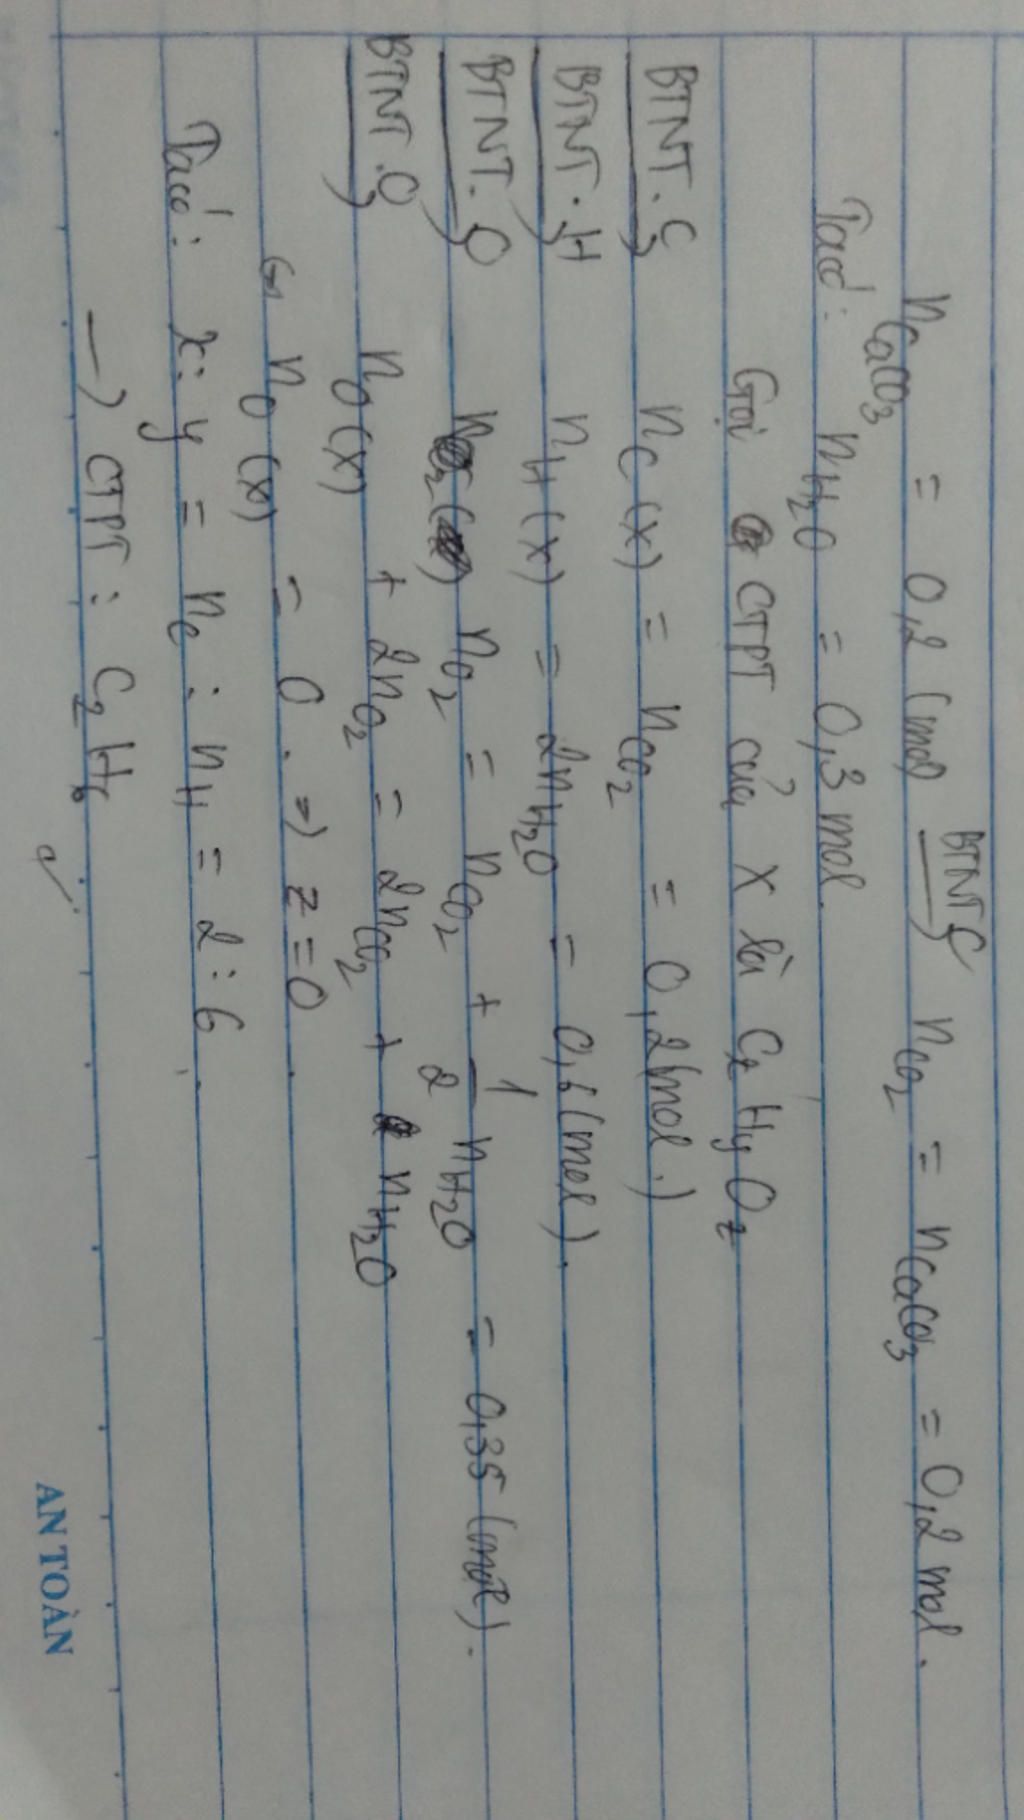 nCaCO3 = 0,2 (mol) BTNT.C nCO2 = nCaCO3 = 0,2 mol.
Ta có: nH2O = 0,3 mol.
Gọi CTPT của X là CxHyOz
BTNT.C nC(X) = nCO2 = 0,2 (mol.)
BTNT.H nH(X) = 2nH2O = 0,6 (mol).
BTNT.O nO2 = nCO2 + 1/2 nH2O = 0,35 (mol).
BTNT.O nO(X) + 2nO2 = 2nCO2 + nH2O
nO(X) = 0. => z = 0.
Ta có: x:y = nC : nH = 2:6.
→ CTPT: C2H6
AN TOÀN